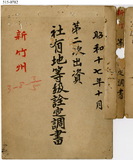 515-0782
昭和十七年十月
第二次出資
社有地等級詮定調書
新竹州